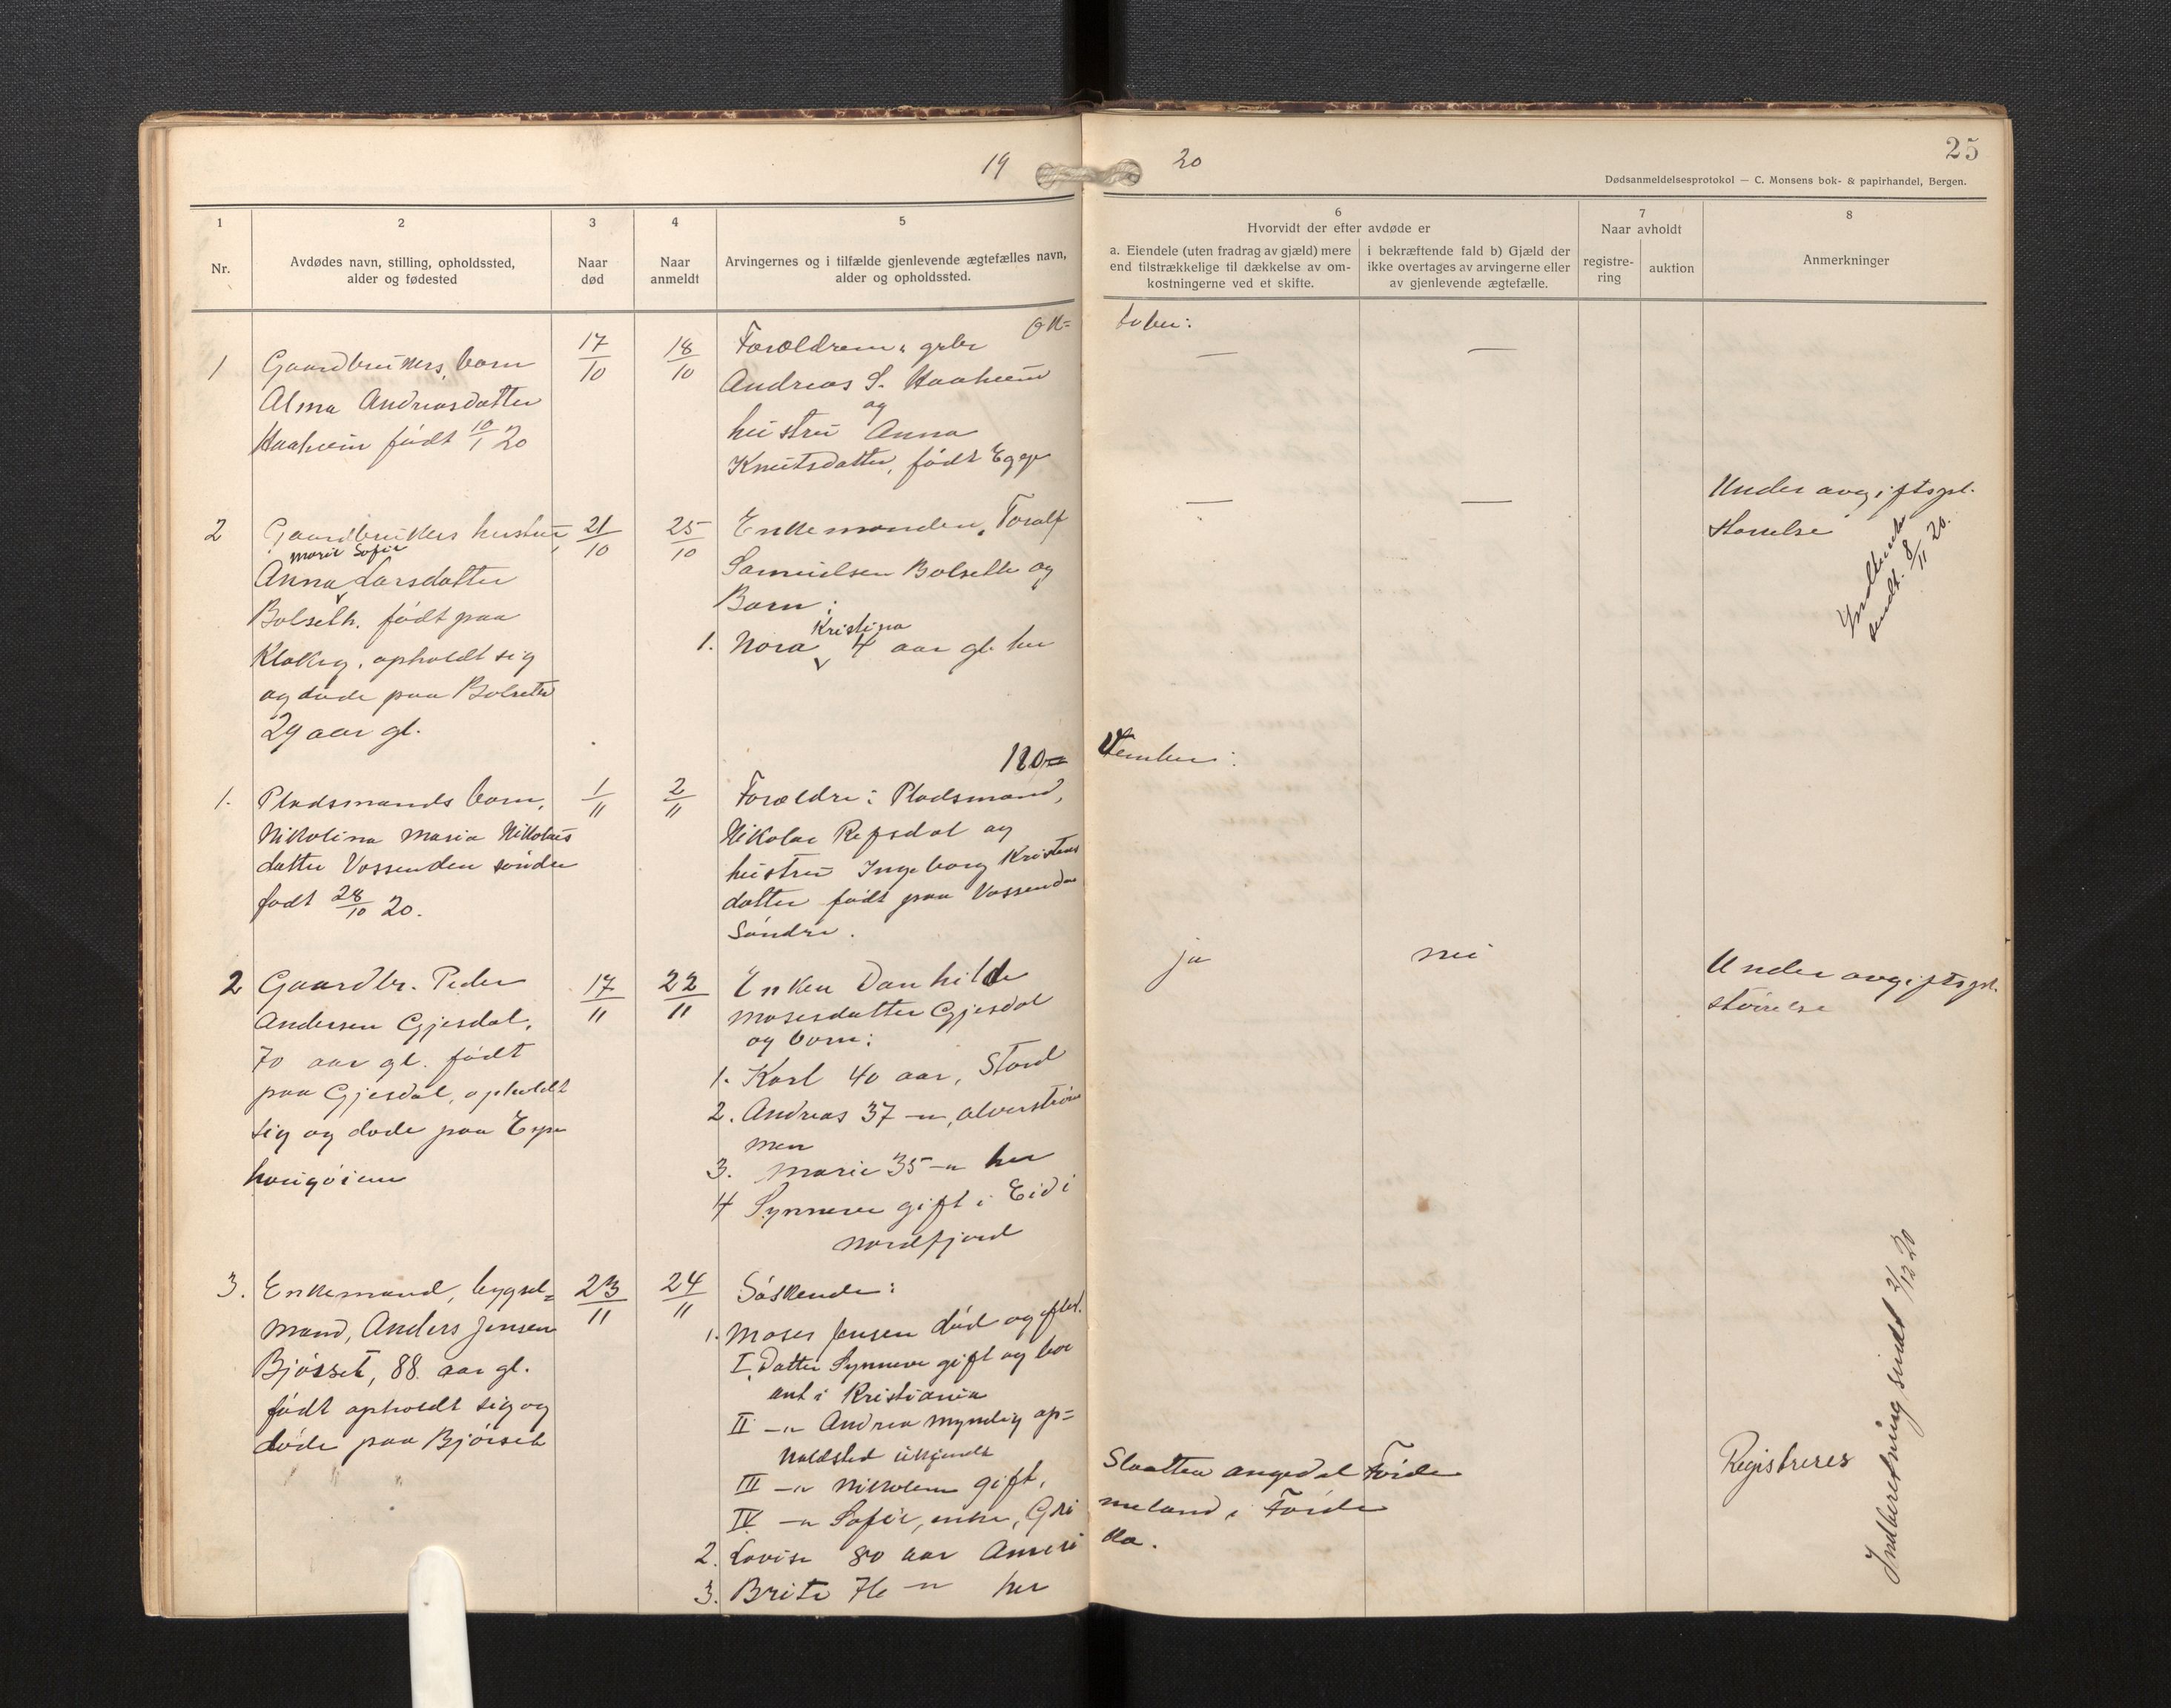 19 20
25
Dødsanmeldelsesprotokol — C. Monsens bok- & papirhandel, Bergen.
1 2 3 4 5
Nr.
Avdødes navn, stilling, opholdssted,
alder og fødested
Naar
død
Naar
anmeldt
Arvingernes og i tilfælde gjenlevende ægtefælles navn,
alder og opholdssted.
6
Hvorvidt der efter avdøde er
a. Eiendele (uten fradrag av gjæld) mere
end tilstrækkelige til dækkelse av om-
kostningerne ved et skifte.
i bekræftende fald b) Gjæld der
ikke overtages av arvingerne eller
av gjenlevende ægtefælle.
7
Naar avholdt
registre-
ring
auktion
8
Anmerkninger
Ok=
tober:
1
Gaardbrukers barn
Alma Andreasdatter
Haaheim født 10/1 20
17/10
18/10
Forældrene: grbr
Andreas S. Haaheim
og
hustru Anna
Knutsdatter, født Egge
— —
2
Gaardbrukers hustru
Marie Sofie
Anna Larsdatter
Bolseth. født paa
Klakeg, opholdt sig
og døde paa Bolseth
29 aar gl.
21/10
25/10
Enkemanden, Toralf
Samuelsen Bolseth og
Barn:
Kristina
1. Nora 4 aar gl. her
— —
Under avgiftspl.
Størrelse
Indberetn
sendt. 8/11 20.
vember:
1.
Pladsmands barn,
Nikolina Maria Nikolais
datter Vossenden søndre
født 28/10 20.
1/11
2/11
Forældre: Pladsmand,
Nikolai Refsdal og
hustru Ingeborg Kristens
datter født paa Vossenden
Søndre.
2
Gaardbr. Peder
Andersen Gjesdal,
70 aar gl. født
paa Gjesdal, opholdt
sig og døde paa
17/11
22/11
Enken Danhilde
Mosesdatter Gjesdal
og barn:
1. Karl 40 aar, Stord
2. Andreas 37 —"—, Alverstrøm
men
3. Marie 35 —"— her
4 Synneve gift i Eid i
Nordfjord
ja
nei
Under avgiftspl.
størrelse
3.
Enkemand, bygsel=
mand, Anders Jensen
Bjørset, 88 aar gl.
født opholdt sig og
døde paa Bjørset
23/11
24/11
Søskende:
1. Moses Jensen død og efterl.
I. Datter Synneve gift og bo
ant i Kristiania
II —"— Andrea myndig op=
holdsted ukjendt
III —"— Nikoline gift, Slaatten Angedal Førde
IV —"— Sofie, enke, Gri meland i Førde
2. Lovise 80 aar Ameri ka.
3. Brite 76 —"— her
Registreres
Indberetning sendt 2/12 20